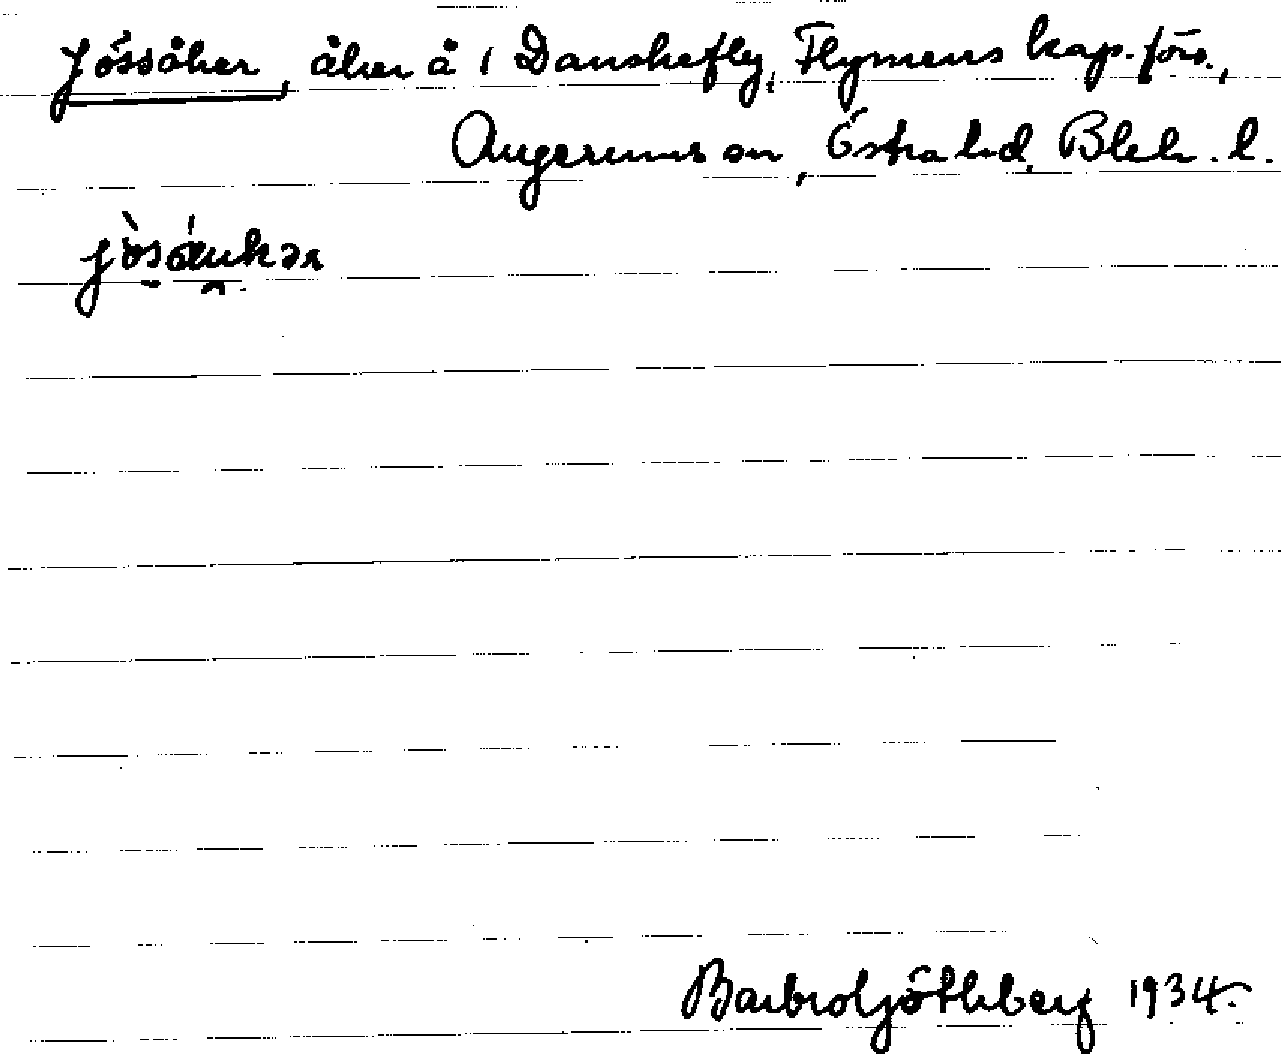 Jössåker, åker å 1 Danskefly, Flymens kap.förs.,
Augerums sn, Östra hd, Blek. l.
Barbro Göthberg 1934.